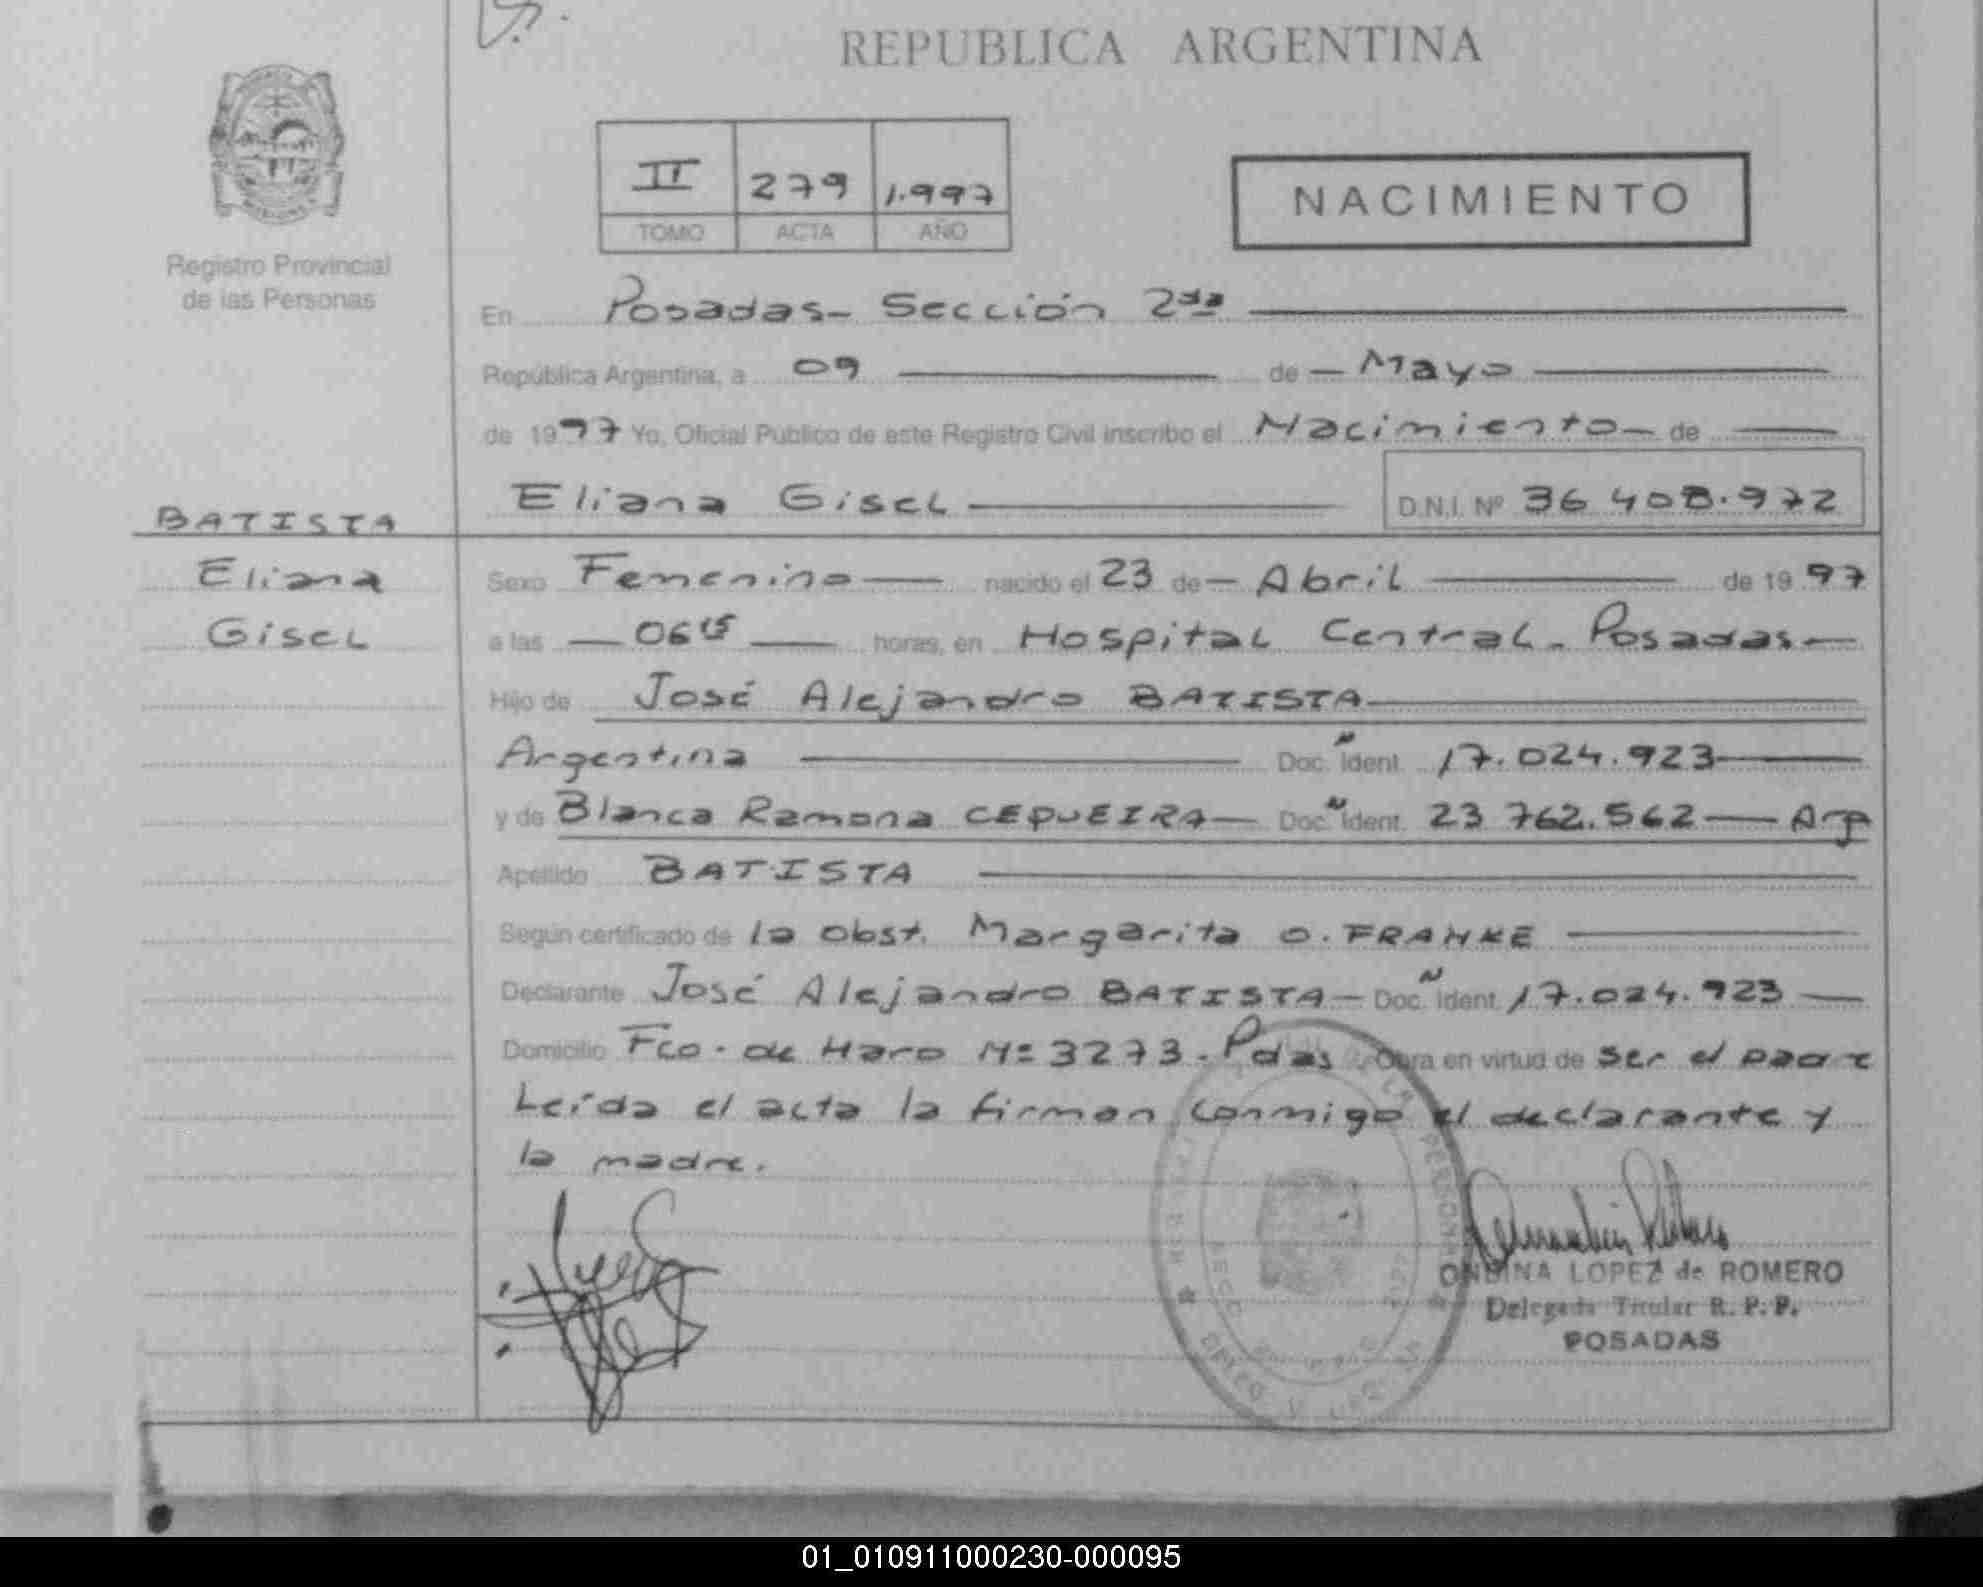 REPUBLICA ARGENTINA
II 279 1.997
TOMO ACTA AÑO
NACIMIENTO
Registro Provincial
de las Personas
En Posadas- Sección 2da
República Argentina, a 09 de Mayo
de 1997 Yo, Oficial Público de este Registro Civil inscribo el Nacimiento de
Eliana Gisel D.N.I. Nº 36 408.972
BATISTA
Eliana
Gisel
Sexo Femenino nacido el 23 de Abril de 1997
a las 06 15 horas, en Hospital Central - Posadas
Hijo de José Alejandro BATISTA
Argentina Doc. Ident. 17.024.923
y de Blanca Ramona CEQUEIRA Doc. Ident. 23 762.562 Arg
Apellido BATISTA
Según certificado de la obst. Margarita O. FRANKE
Declarante José Alejandro BATISTA Doc. Ident. 17.024.923
Domicilio Fco. de Haro Nº 3273. Pdas Obra en virtud de ser el padre
Leída el acta la firman conmigo el declarante y
la madre.
ONDINA LOPEZ de ROMERO
Delegada Titular R. P. P.
POSADAS
01_010911000230-000095